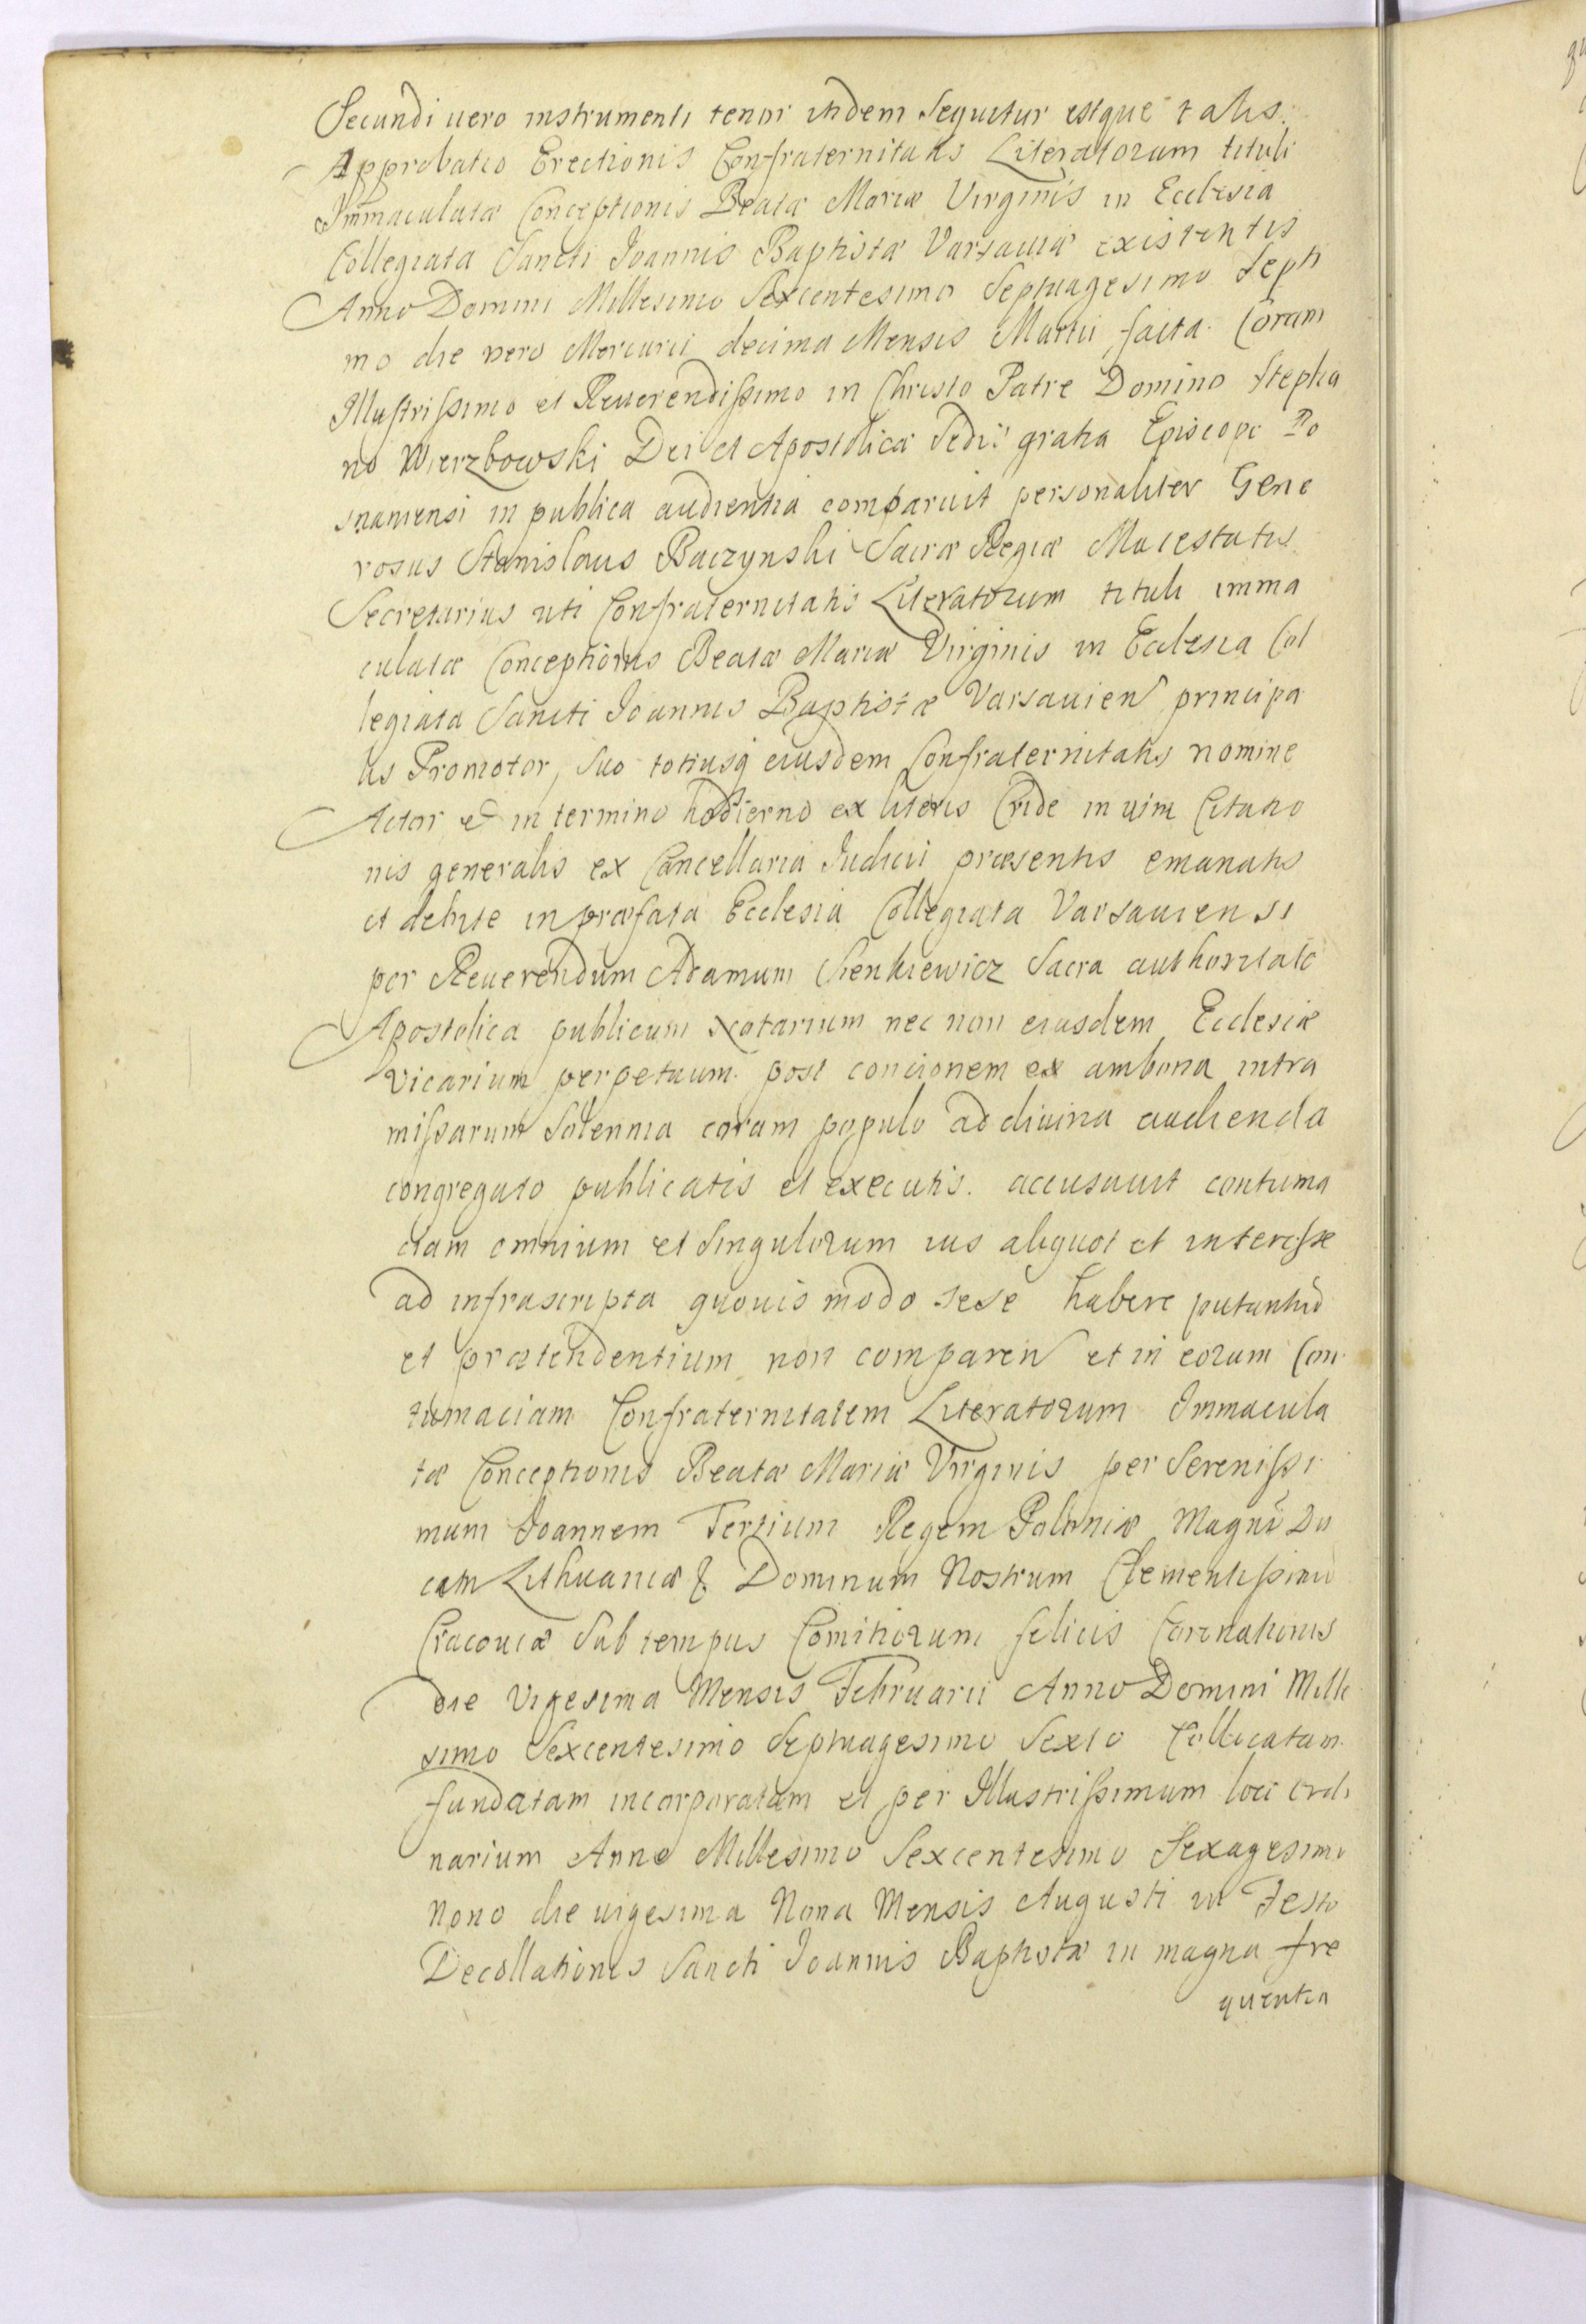 Secundi uero instrumenti tenor itidem Sequitur estque talis.
Approbatio Erectionis Confraternitatis Literatorum tituli
Immaculatæ Conceptionis Beatæ Mariæ Virginis in Ecclesia
Collegiata Sancti Joannis Baptistæ Varsauiæ existentis
Anno Domini Millesimo Sexcentesimo Septuagesimo Septi
mo die vero Mercurii decima Mensis Martii facta. Coram
Illustrissimo et Reuerendissimo in Christo Patre Domino Stepha
no Wierzbowski Dei et Apostolicæ Sedis gratia Episcopo Po
snaniensi in publica audientia comparuit personaliter Gene
rosus Stanislaus Baczynski Sacræ Regiæ Maiestatis
Secretarius uti Confraternitatis Literatorum tituli imma
culatæ Conceptionis Beatæ Mariæ Virginis in Ecclesia Col
legiata Sancti Joannis Baptistæ Varsauien principa
lis Promotor, suo totiusq eiusdem Confraternitatis nomine
Actor et in termino hodierno ex literis in uim Citatio
nis generalis ex Cancellaria Iudicii præsentis emanatis
et debite in præfata Ecclesia Collegiata Varsauiensi
per Reuerendum Adamum Sienkiewicz Sacra authoritate
Apostolica publicum Notarium nec non eiusdem Ecclesiæ
Vicarium perpetuum. post concionem ex ambona intra
missarum Solennia coram populo ad diuina audienda
congregato publicatis et executis. accusauit contuma
ciam omnium et Singulorum ius aliquot et interesse
ad infrascripta quouis modo sese habere putantiũ
et prætendentium non comparen et in eorum Con
tumaciam Confraternitatem Literatorum Immacula
tæ Conceptionis Beatæ Mariæ Virginis per Serenissi
mum Joannem Tertium Regem Poloniæ Magnũ Du
cem Lithuaniæ & Dominum Nostrum Clementissimũ
Cracouiæ Sub tempus Comitiorum felicis Coronationis
die Vigesima Mensis Februarii Anno Domini Mille
simo Sexcentesimo Septuagesimo Sexto Collocatam
fundatam incorporatam et per Illustrissimum loci Ordi
narium Anno Millesimo Sexcentesimo Sexagesimo
Nono die uigesima Nona Mensis Augusti in Festo
Decollationis Sancti Joannis Baptistæ in magna fre
quentia